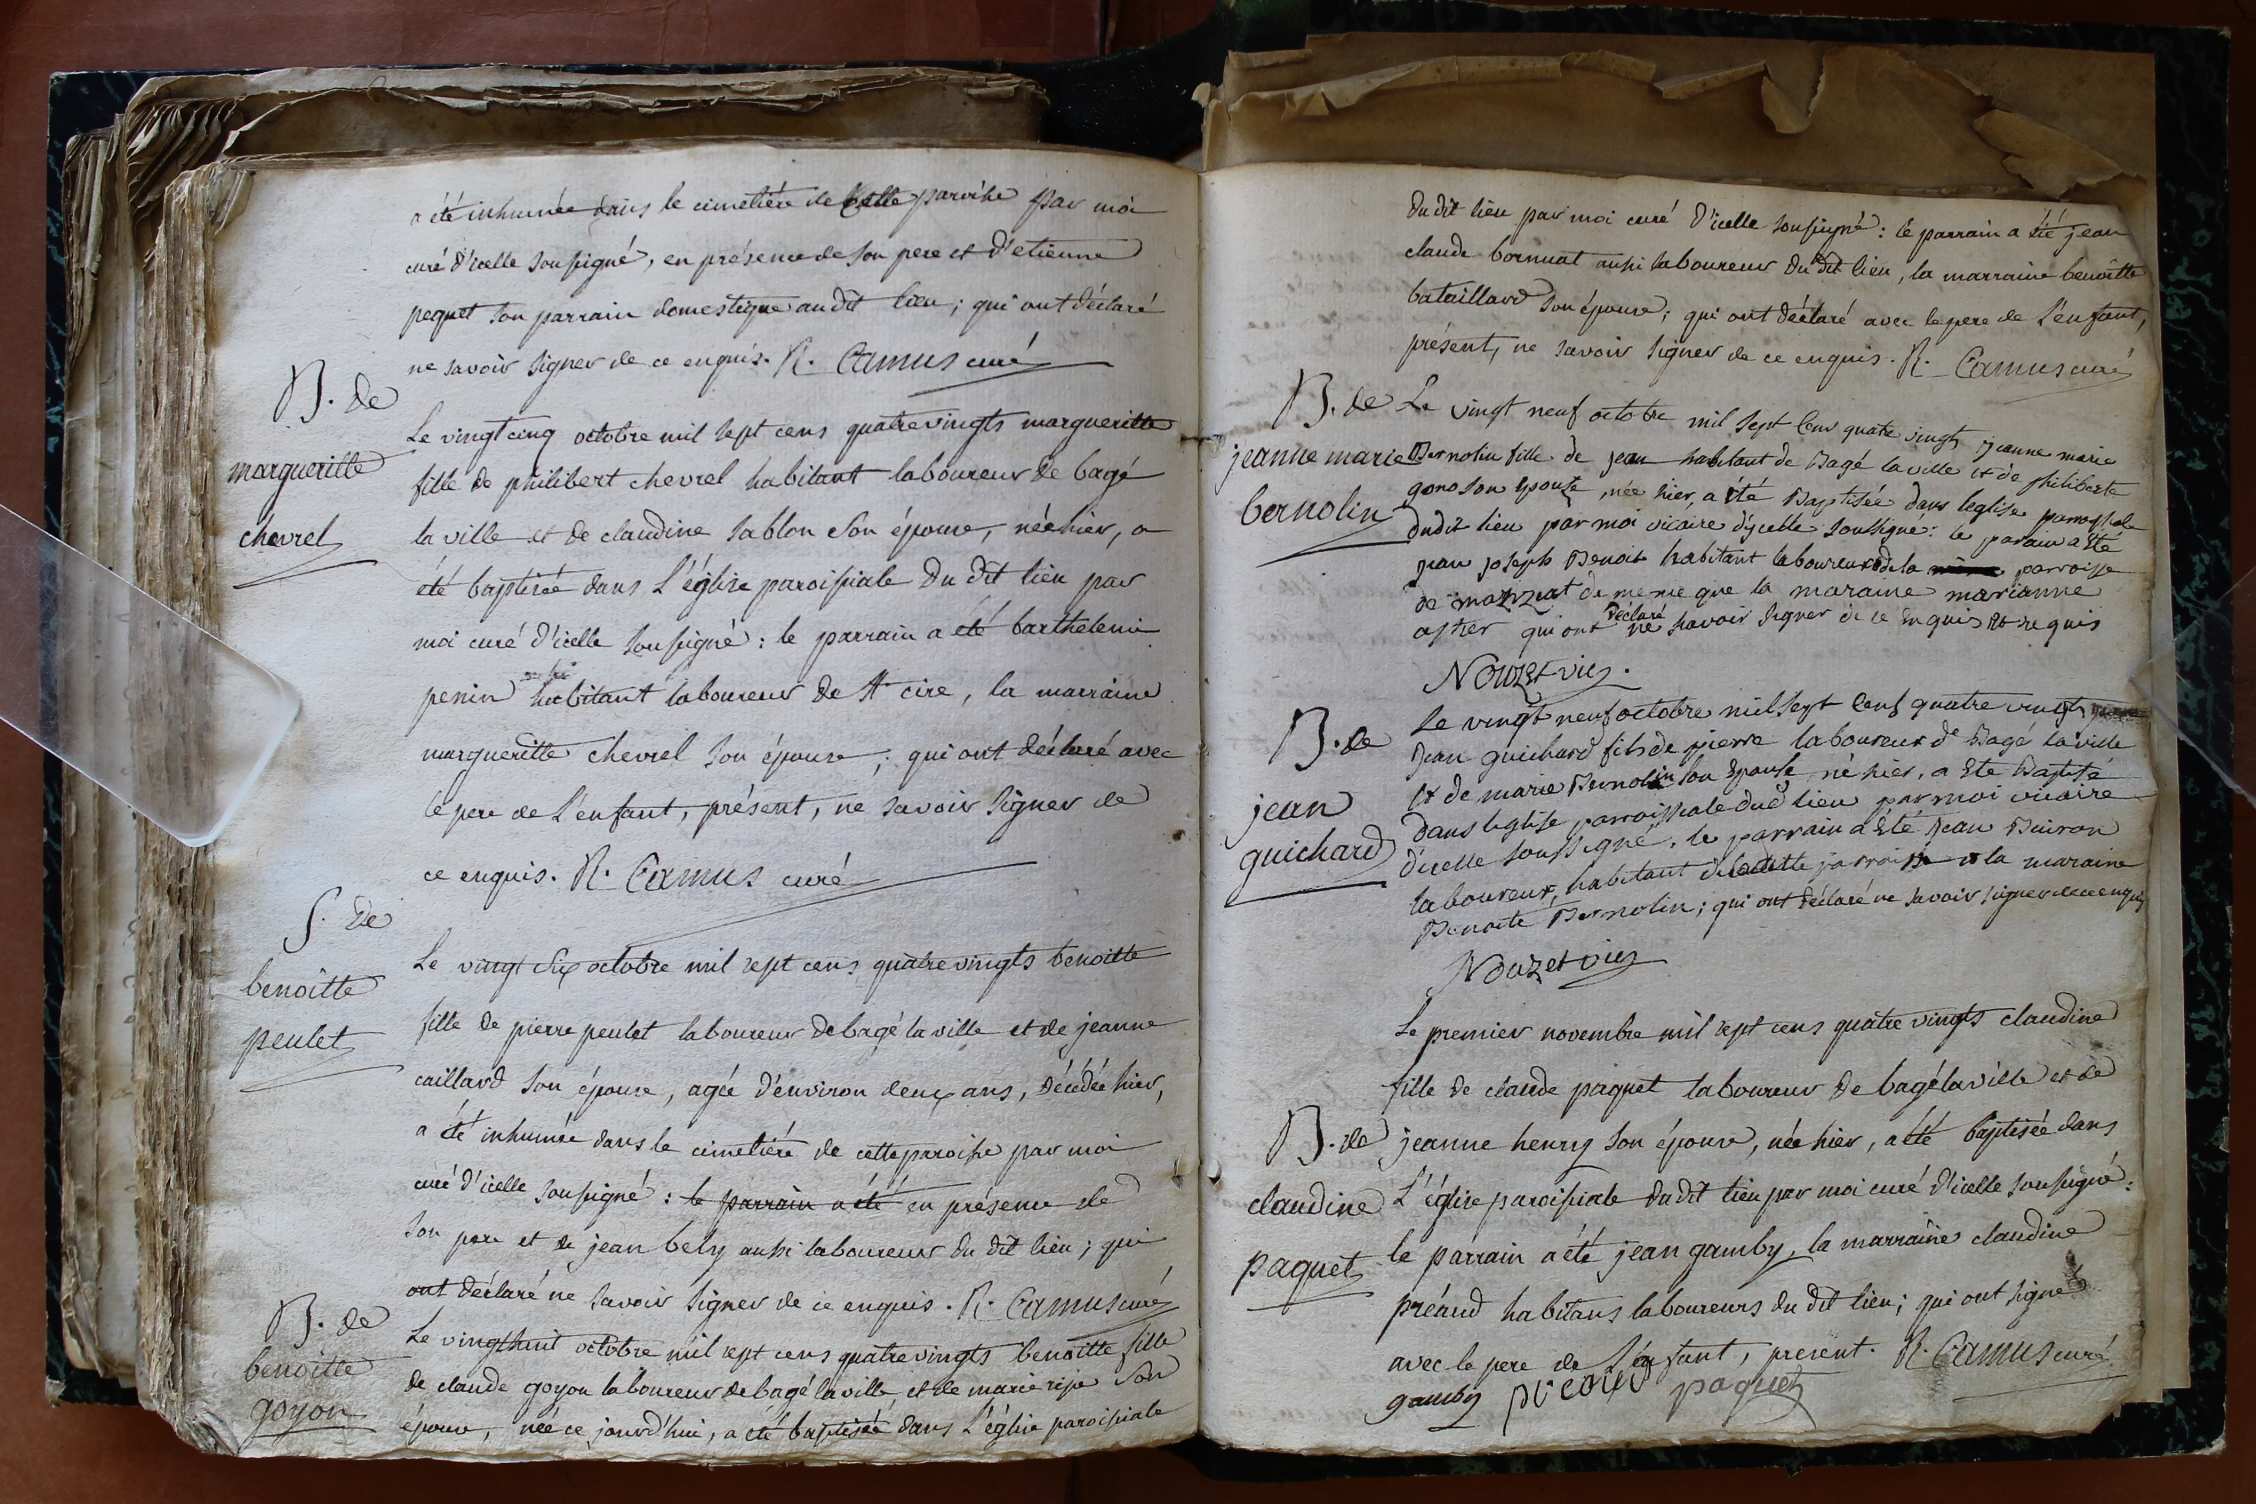 a été inhumée dans le cimetière de cette paroisse par moi
curé d'icelle soussigné, en présence de son pere et d'etienne
pequet son parrain domestique au dit lieu; qui ont déclaré
ne savoir signer de ce enquis. R. Camus curé
B. de
margueritte
chevrel
Le vingt cinq octobre mil sept cens quatre vingts margueritte
fille de philibert chevrel habitant laboureur de bagé
la ville et de claudine sablon son épouse, née hier, a
été baptisée dans L'église paroissiale du dit lieu par
moi curé d'icelle soussigné: le parrain a été barthelemi
penin habitant laboureur de st cire, la marraine
margueritte chevrel son épouse; qui ont déclaré avec
le pere de L'enfant, présent, ne savoir signer de
ce enquis. R. Camus curé
S. de
benoitte
peulet
Le vingt six octobre mil sept cens quatre vingts benoitte
fille de pierre peulet laboureur de bagé la ville et de jeanne
caillard son épouse, agée d'environ deux ans, décédée hier,
a été inhumée dans le cimetière de cette paroisse par moi
curé d'icelle soussigné: le parrain a été en présence de
son pere et de jean bely aussi laboureur du dit lieu; qui
ont déclaré ne savoir signer de ce enquis. R. Camus curé
B. de
benoitte
goyon
Le vingthuit octobre mil sept cens quatre vingts benoitte fille
de claude goyon laboureur de bagé la ville et de marie ripe son
épouse, née ce jourd'hui, a été baptisée dans L'église paroissiale
du dit lieu par moi curé d'icelle soussigné: le parrain a été jean
claude bornuat aussi laboureur du dit lieu, la marraine benoitte
bataillard son épouse; qui ont déclaré avec le pere de L'enfant,
présent, ne savoir signer de ce enquis. R. Camus curé
B. de
jeanne marie
bernolin
Le vingt neuf octobre mil sept cens quatre vingt jeanne marie
Bernolin fille de jean habitant de Bagé la ville et de philiberte
gono son epouse, née hier, a été Baptisée dans leglise parroissiale
dudit lieu par moi vicaire d'jcelle soussigné: le parain a Eté
jean joseph Benoit habitant laboureur de la parroisse
de mozzat de meme que la maraine marianne
after qui ont déclaré ne savoir signer de ce Enquis et requis
Nouzet vic.
B. de
jean
guichard
Le vingt neuf octobre mil sept cens quatre vingts
Jean guichard fils de pierre laboureur de Bagé la ville
et de marie Bernolin son Epouse, né hier, a Eté Baptisé
dans leglise parroissiale dud lieu par moi vicaire
d'icelle soussigné, le parrain a Eté Jean Buiron
laboureur, habitant de ladite parroisse et la maraine
Benoite Bernolin; qui ont déclaré ne savoir signer de ce enquis
Nouzet vic
B. de
claudine
paquet
Le premier novembre mil sept cens quatre vingts claudine
fille de claude paquet laboureur de bagé la ville et de
jeanne henry son épouse, née hier, a été baptisée dans
L'église paroissiale du dit lieu par moi curé d'icelle soussigné:
le parrain a été jean gamby, la marraine claudine
préaud habitans laboureurs du dit lieu; qui ont signé
avec le pere de L'enfant, present. R. Camus curé
gamby paquet